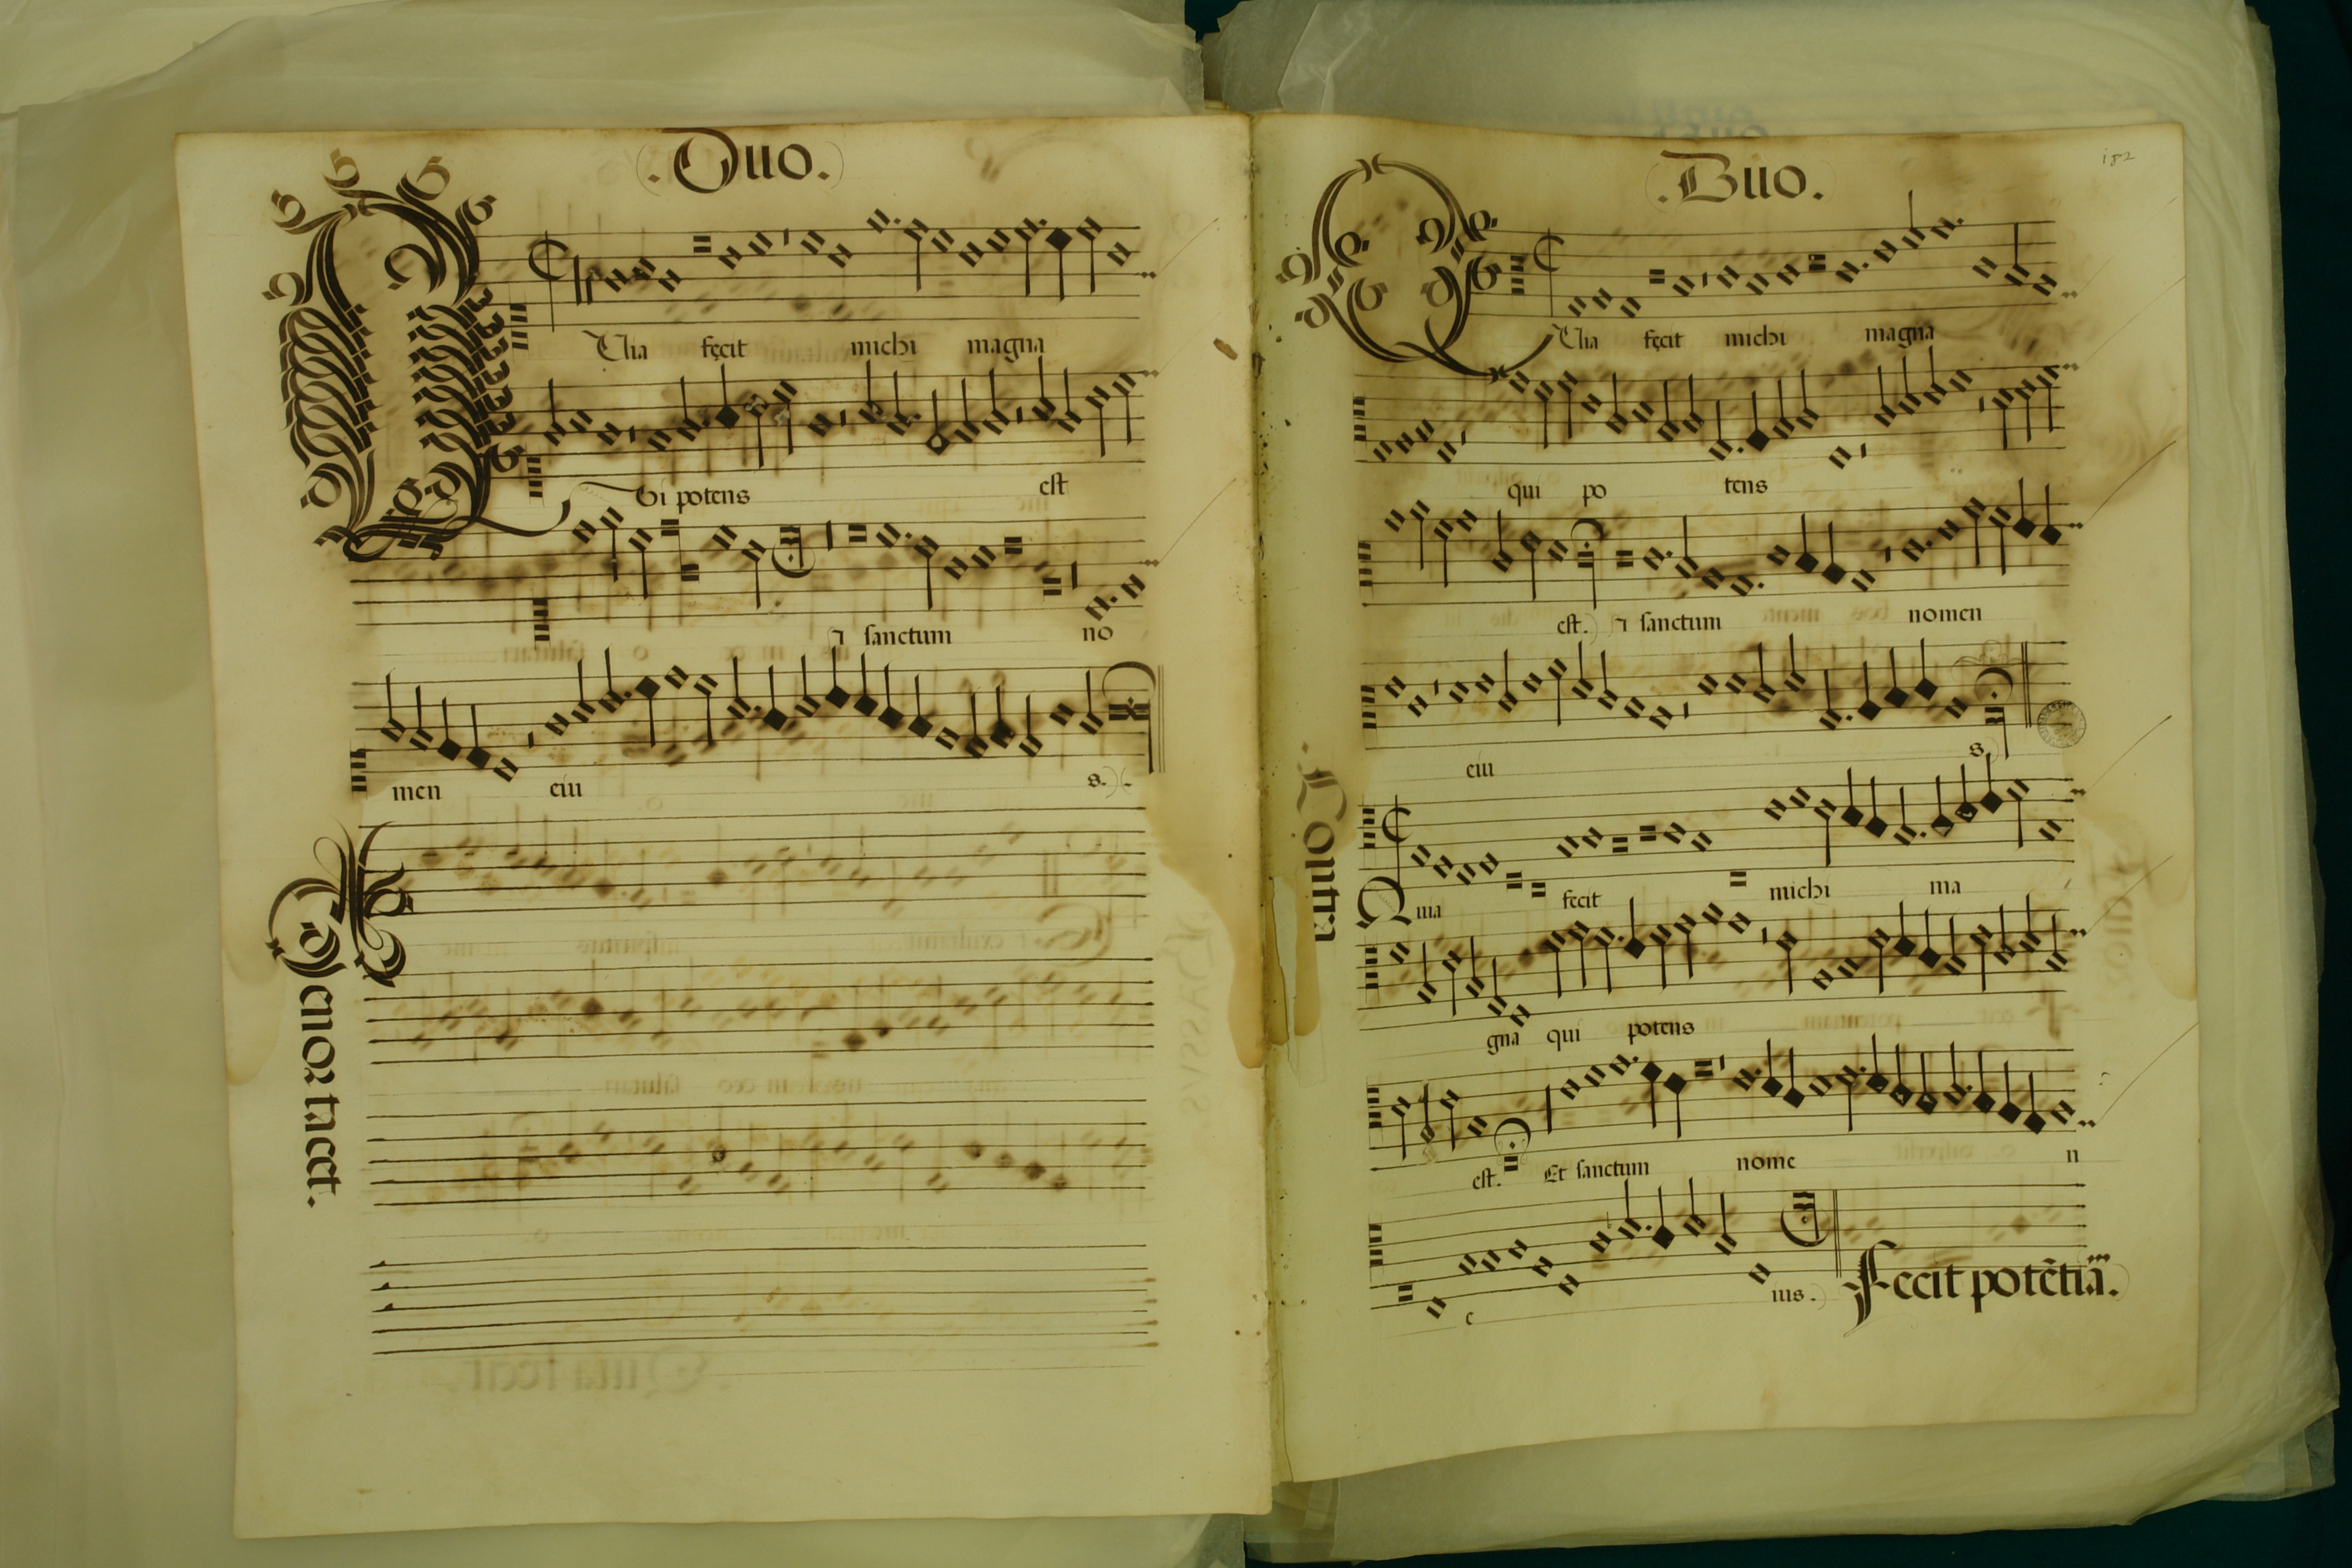 .Duo.
Uia fecit michi magna
Qui potens est
⁊ sanctum no
men eiu s.
Tenor tacet.
182
.Duo.
Quia fecit michi magna
qui po tens
est. ⁊ sanctum nomen
eiu s.
Contra
Quia fecit michi ma
gna qui potens
est. Et sanctum nome n
e ius.
Fecit potētiā.